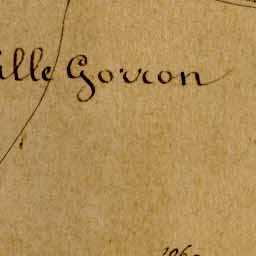 ille Gorron